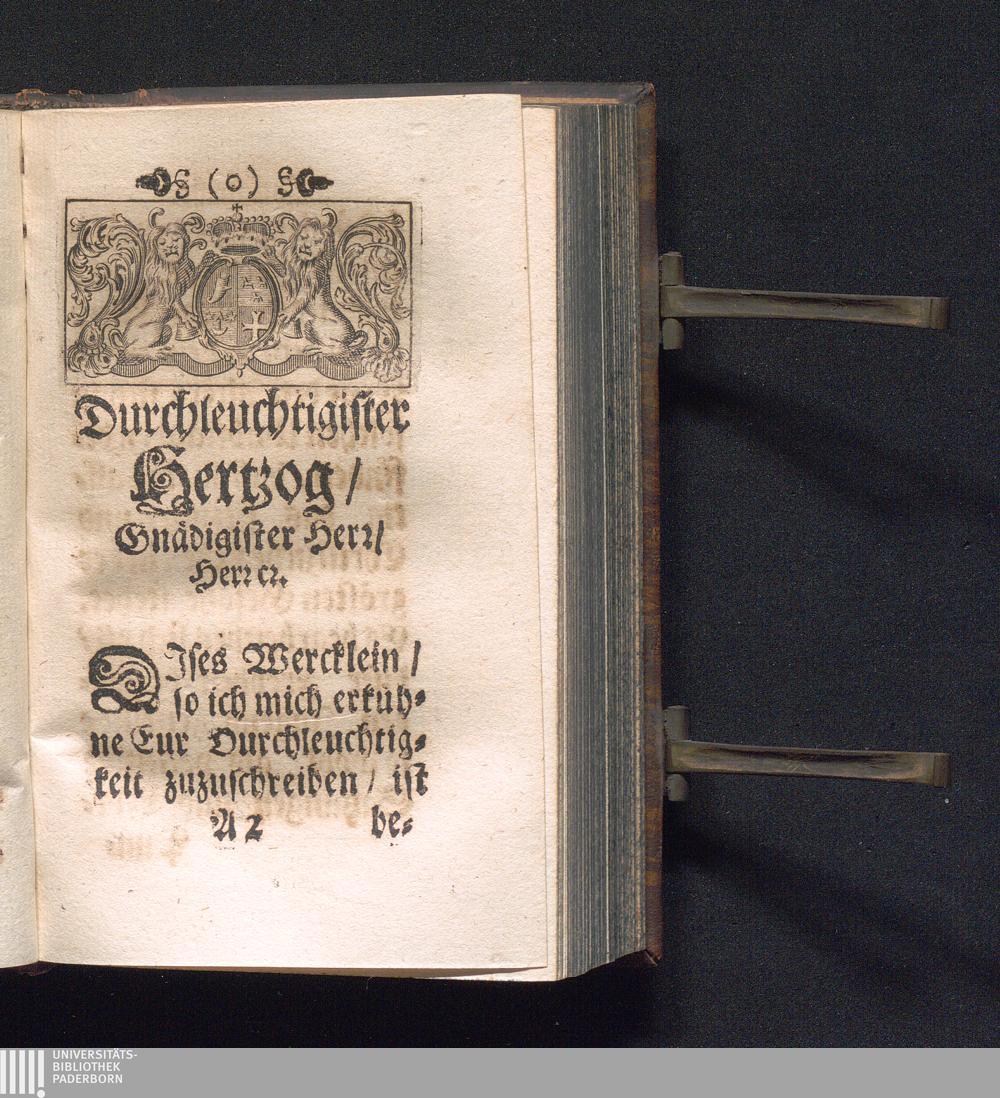 § (o) §
Durchleuchtigiſter
Hertzog/
Gnädigiſter Herr/
Herr ꝛc.
DIſes Wercklein/
ſo ich mich erkuͤh⸗
ne Eur Durchleuchtig⸗
keit zuzuſchreiben/ iſt
A 2 be⸗
UNIVERSITÄTS-
BIBLIOTHEK
PADERBORN